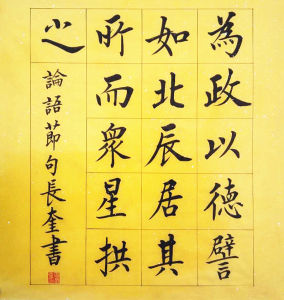 為政以德譬
如北辰居其
所而眾星拱
之
論語節句長奎書